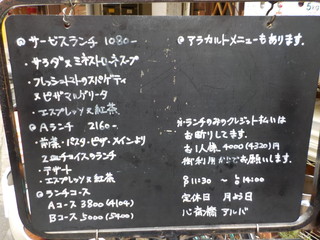 ◎ サービスランチ 1080-
・サラダ又ミネストローネスープ
・フレッシュトマトスパゲティ
又ピザマルゲリータ
・エスプレッソ又紅茶
◎ Aランチ 2160-
・前菜・パスタ・ピザ・メインより
2品チョイスランチ
・デザート
・エスプレッソ又紅茶
◎ ランチコース
Aコース 3800 (4104)
Bコース 5000 (5400)
◎ アラカルトメニューもあります。
※ランチのみのクレジット払いは
お断りしてます。
お1人様 4000 (4320) 円
御利用からでお願いします。
11:30 ~ 14:00
定休日 月よう日
心斎橋 アルバ